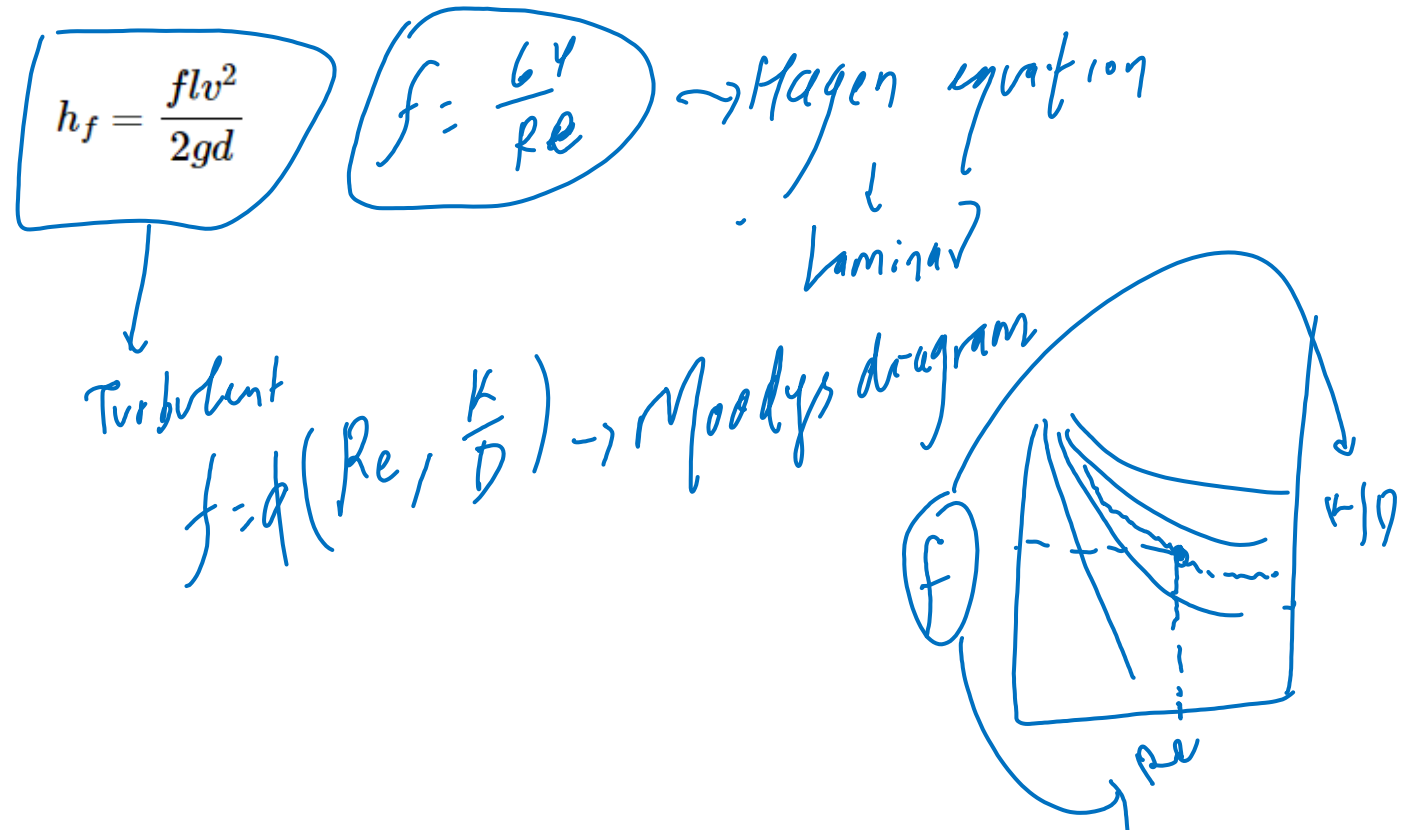 h_f = flv²/2gd
f = 64/Re → Hagen equation
↓
Laminar
↓
Turbulent
f = ϕ(Re, K/D) → Moodys diagram
f
K/D
Re